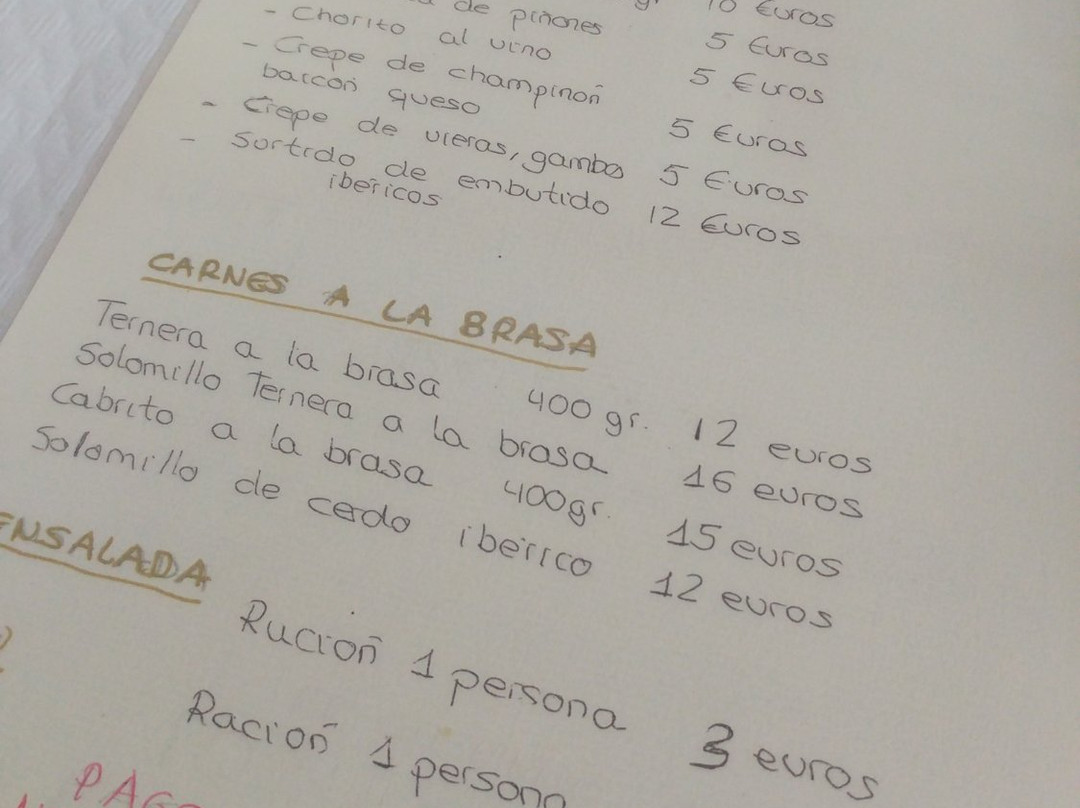 de piñones 10 Euros
- Chorito al vino 5 Euros
- Crepe de champinoñ 5 Euros
barcon queso
- Crepe de vieras, gambas 5 Euros
- Surtido de embutido 5 Euros
ibericos 12 Euros
CARNES A LA BRASA
Ternera a la brasa 400 gr. 12 euros
Solomillo Ternera a la brasa 16 euros
Cabrito a la brasa 400gr. 15 euros
Solomillo de cerdo iberico 12 euros
ENSALADA
Rucion 1 persona 3 euros
Racion 1 persona